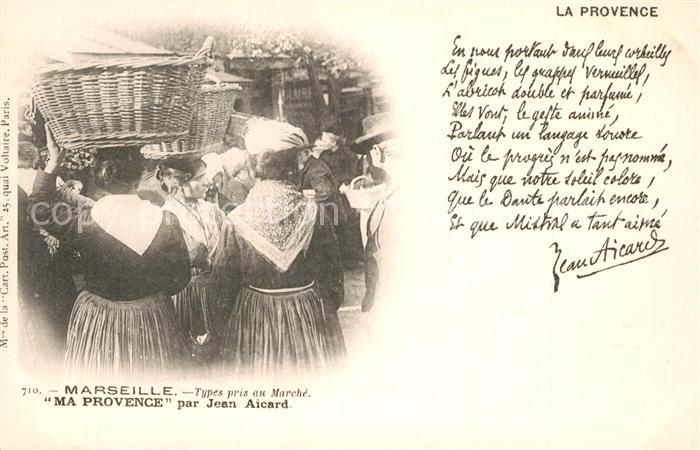 LA PROVENCE
En nous portant dans leurs corbeilles
Les figues, les grappes vermeilles,
L'abricot double et parfumé,
Elles vont, le geste animé,
Parlant un langage sonore
Où le progrès n'est pas nommé,
Mais que notre soleil colore,
Que le Dante parlait encore,
Et que Mistral a tant aimé
Jean Aicard
copyright
Mon de la "Cart. Post. Art." 25, quai Voltaire, Paris.
710. — MARSEILLE. — Types pris au Marché.
"MA PROVENCE" par Jean Aicard.